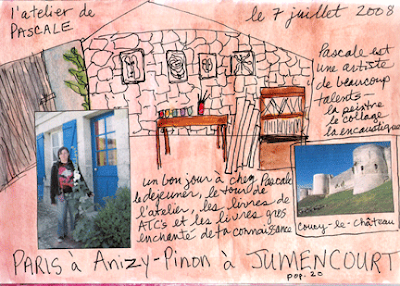 l'atelier de
PASCALE
le 7 juillet 2008
Pascale est
une artiste
de beaucoup
talents—
la peintre
le collage
la encaustique
un bon jour à chez Pascale
le dejeuner, le tour de
l'atelier, les livres de
ATC's et les livres gros
enchanté de ta connaissance
Coucy-le-Château
PARIS à Anizy-Pinon à JUMENCOURT
pop. 20